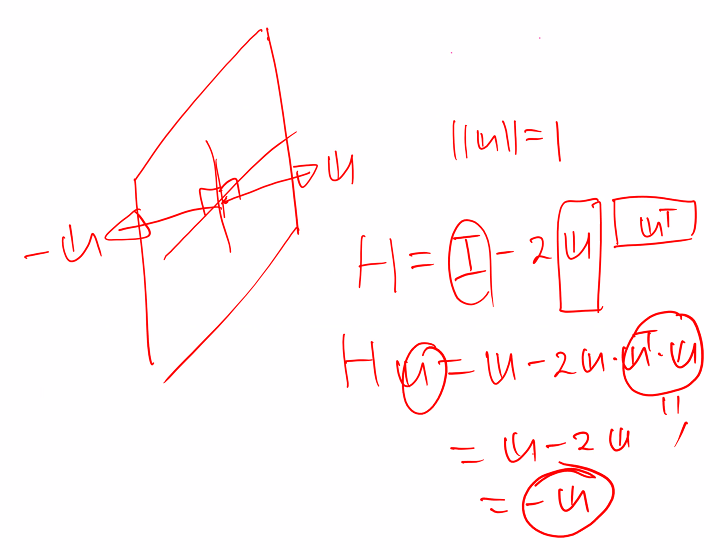 ||u||=1
u
-u
H=I-2u uᵀ
Hu=u-2u·uᵀ·u
=u-2u
=-u